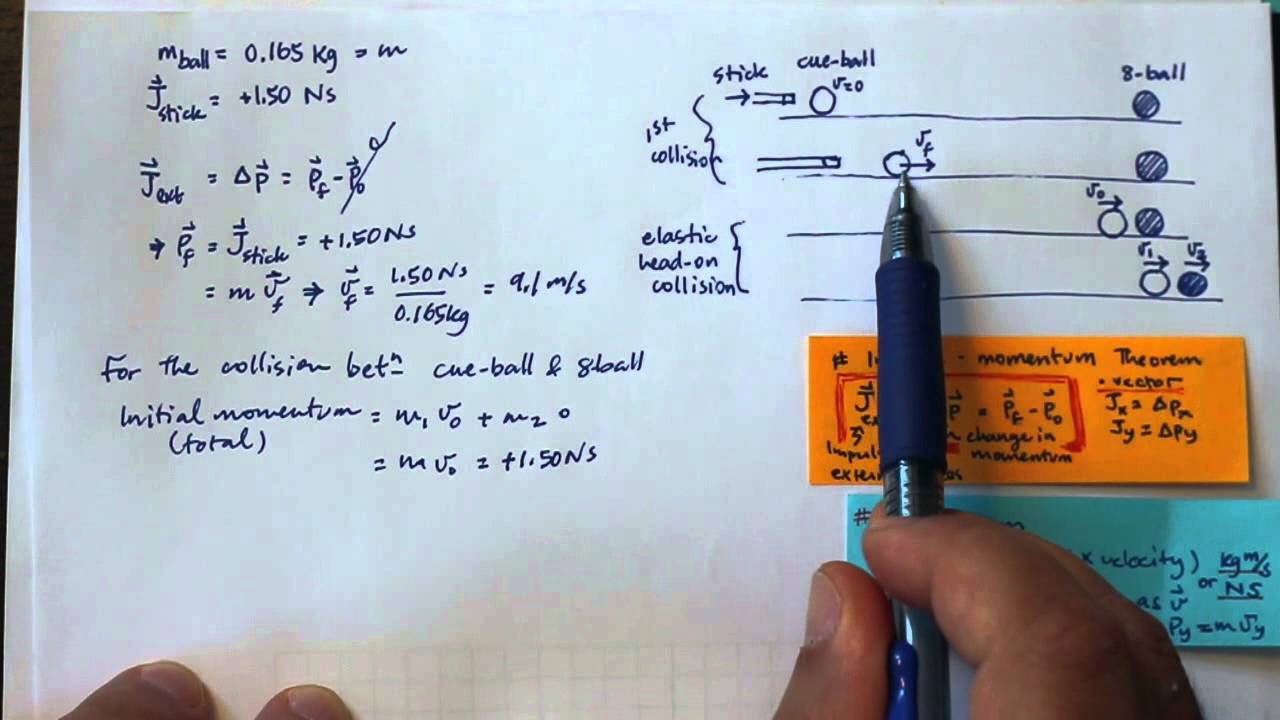 m ball = 0.165 kg = m
J⃗ stick = +1.50 Ns
J⃗ ext = ΔP⃗ = P⃗f - P⃗0 0
⇒ P⃗f = J⃗ stick = +1.50 Ns
= m v⃗f ⇒ v⃗f = 1.50 Ns / 0.165 kg = 9.1 m/s
For the collision betⁿ cue-ball & 8ball
Initial momentum = m₁ v₀ + m₂ 0
(total)
= m v₀ = +1.50 Ns
stick cue-ball 8-ball
v=0
1st
collision
vf
elastic
head-on
collision
v₀
v₁ v₂
# - momentum Theorem
J⃗ ext P⃗ = P⃗f - P⃗0
change in
momentum
• vector
Jx = ΔPx
Jy = ΔPy
#
x velocity) kg m/s
or NS
as v⃗
Py = m vy